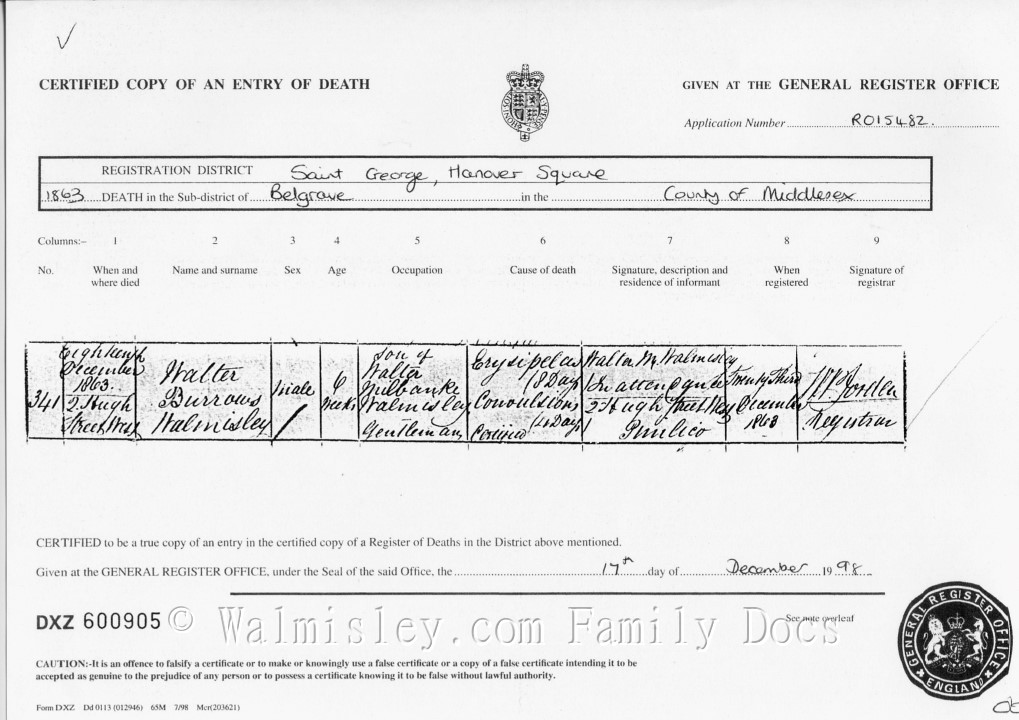 CERTIFIED COPY OF AN ENTRY OF DEATH
GIVEN AT THE GENERAL REGISTER OFFICE
Application Number R015482.
REGISTRATION DISTRICT Saint George, Hanover Square
1863 DEATH in the Sub-district of Belgrave in the County of Middlesex
Columns:- 1 2 3 4 5 6 7 8 9
No. When and where died Name and surname Sex Age Occupation Cause of death Signature, description and residence of informant When registered Signature of registrar
341
Eighteenth
December
1863.
2 Hugh
Street West
Walter
Burrows
Walmisley
Male
6
Weeks
Son of
Walter
Milbanke
Walmisley
Gentleman
Erysipelas
18 Days
Convulsions
Certified
Walter M Walmisley
In attendance
2 Hugh Street West
Pimlico
Twenty Third
December
1863
Registrar
CERTIFIED to be a true copy of an entry in the certified copy of a Register of Deaths in the District above mentioned.
Given at the GENERAL REGISTER OFFICE, under the Seal of the said Office, the 17th day of December 1998
DXZ 600905
© Walmisley.com Family Docs
See note overleaf
CAUTION:-It is an offence to falsify a certificate or to make or knowingly use a false certificate or a copy of a false certificate intending it to be
accepted as genuine to the prejudice of any person or to possess a certificate knowing it to be false without lawful authority.
GENERAL REGISTER OFFICE
ENGLAND
Form DXZ Dd 0113 (012946) 65M 7/98 Mcr(203621)